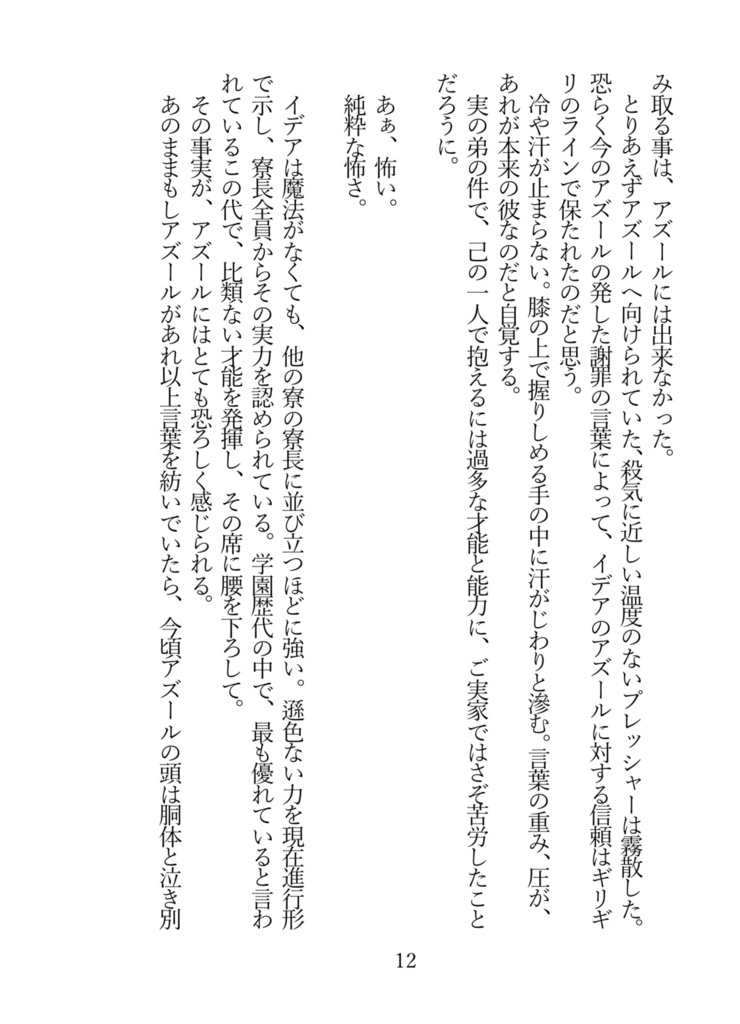 み取る事は、アズールには出来なかった。
とりあえずアズールへ向けられていた、殺気に近しい温度のないプレッシャーは霧散した。
恐らく今のアズールの発した謝罪の言葉によって、イデアのアズールに対する信頼はギリギ
リのラインで保たれたのだと思う。
冷や汗が止まらない。膝の上で握りしめる手の中に汗がじわりと滲む。言葉の重み、圧が、
あれが本来の彼なのだと自覚する。
実の弟の件で、己の一人で抱えるには過多な才能と能力に、ご実家ではさぞ苦労したこと
だろうに。
あぁ、怖い。
純粋な怖さ。
イデアは魔法がなくても、他の寮の寮長に並び立つほどに強い。遜色ない力を現在進行形
で示し、寮長全員からその実力を認められている。学園歴代の中で、最も優れていると言わ
れているこの代で、比類ない才能を発揮し、その席に腰を下ろして。
その事実が、アズールにはとても恐ろしく感じられる。
あのままもしアズールがあれ以上言葉を紡いでいたら、今頃アズールの頭は胴体と泣き別
12